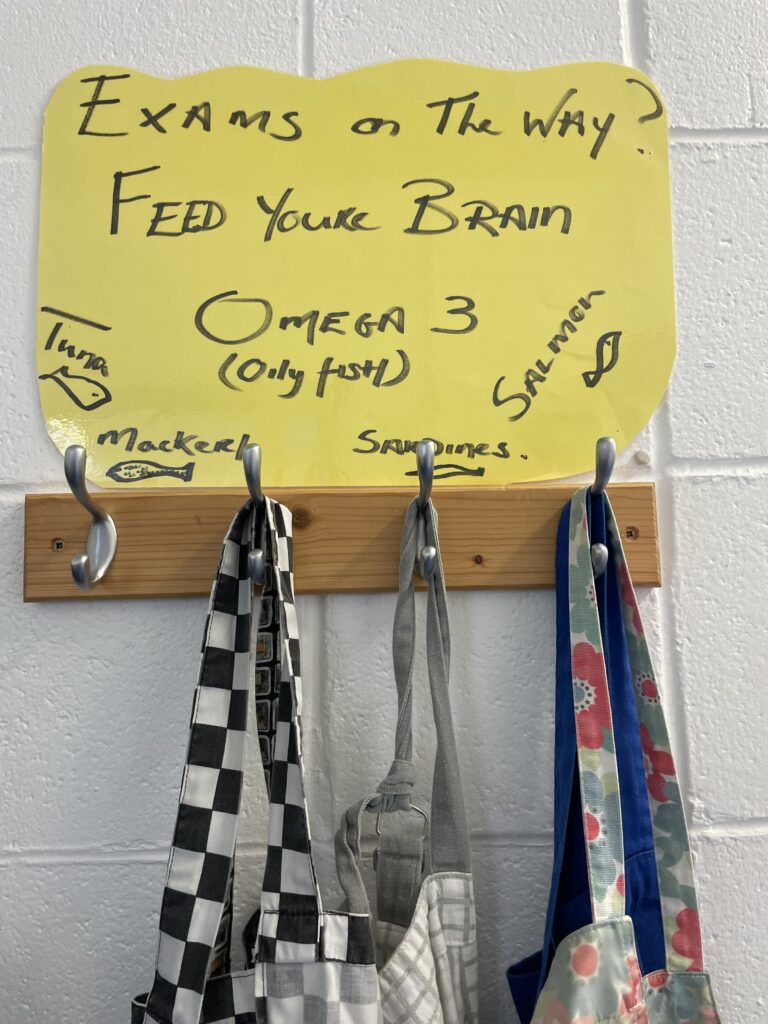 Exams on The Way?
Feed Youre Brain
Omega 3
(Oily fish)
Tuna
Salmon
Mackerl
Sardines.